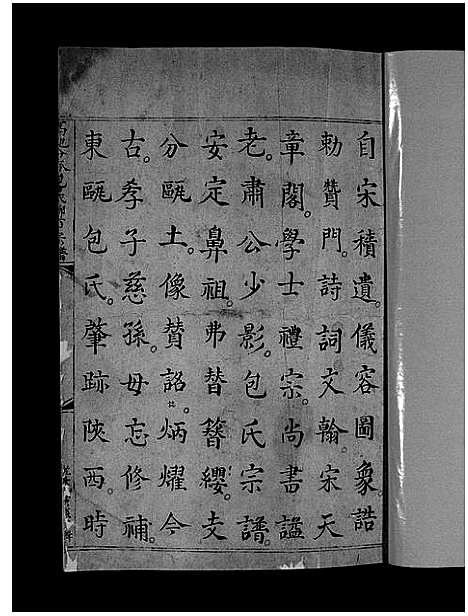 自宋積遺。儀容圖象。誥
勅贊門。詩詞文翰。宋天
章閣。學士禮宗。尚書諡
老。肅公少影。包氏宗譜。
安定鼻祖。弗替簪纓。支
分甌土。像賛詔。炳燿今
古。孝子慈孫。毋忘修補。
東甌包氏。肇跡陝西。時